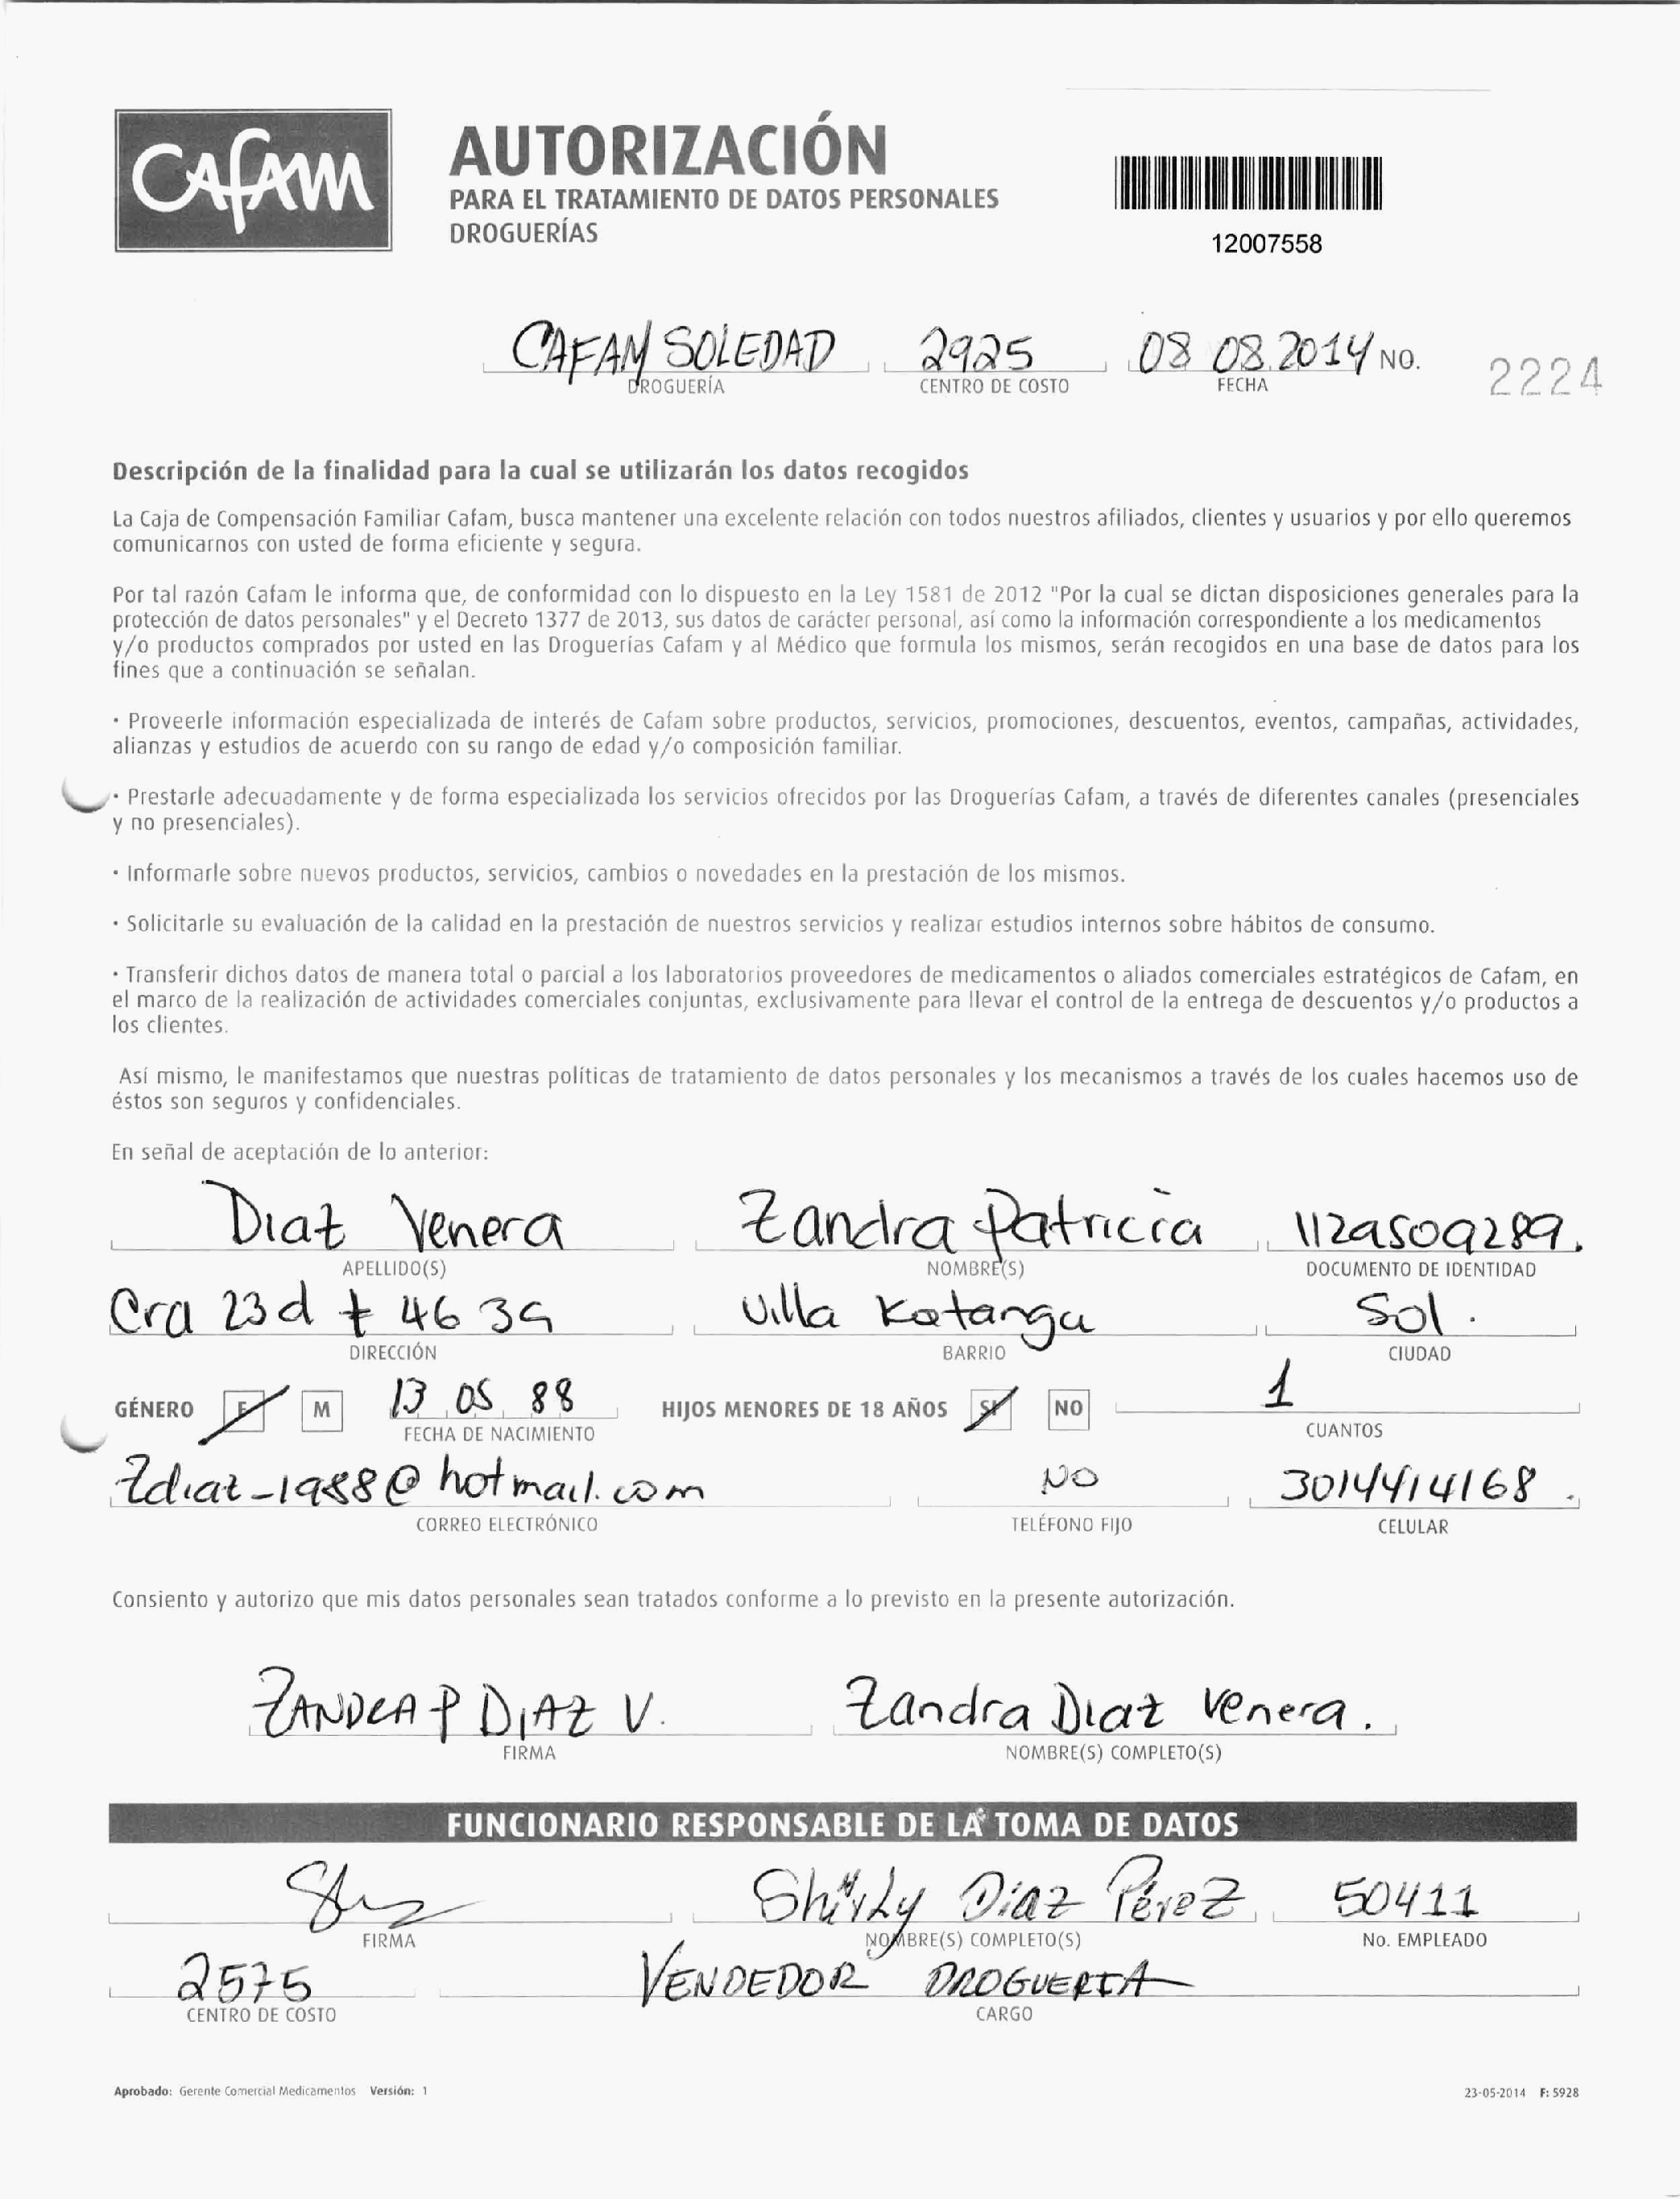 CAFAM
AUTORIZACIÓN
PARA EL TRATAMIENTO DE DATOS PERSONALES
DROGUERÍAS
12007558
CAFAM SOLEDAD 2925 08 08.2014 NO. 2224
DROGUERÍA CENTRO DE COSTO FECHA
Descripción de la finalidad para la cual se utilizarán los datos recogidos
La Caja de Compensación Familiar Cafam, busca mantener una excelente relación con todos nuestros afiliados, clientes y usuarios y por ello queremos
comunicarnos con usted de forma eficiente y segura.
Por tal razón Cafam le informa que, de conformidad con lo dispuesto en la Ley 1581 de 2012 "Por la cual se dictan disposiciones generales para la
protección de datos personales" y el Decreto 1377 de 2013, sus datos de carácter personal, así como la información correspondiente a los medicamentos
y/o productos comprados por usted en las Droguerías Cafam y al Médico que formula los mismos, serán recogidos en una base de datos para los
fines que a continuación se señalan.
· Proveerle información especializada de interés de Cafam sobre productos, servicios, promociones, descuentos, eventos, campañas, actividades,
alianzas y estudios de acuerdo con su rango de edad y/o composición familiar.
· Prestarle adecuadamente y de forma especializada los servicios ofrecidos por las Droguerías Cafam, a través de diferentes canales (presenciales
y no presenciales).
· Informarle sobre nuevos productos, servicios, cambios o novedades en la prestación de los mismos.
· Solicitarle su evaluación de la calidad en la prestación de nuestros servicios y realizar estudios internos sobre hábitos de consumo.
· Transferir dichos datos de manera total o parcial a los laboratorios proveedores de medicamentos o aliados comerciales estratégicos de Cafam, en
el marco de la realización de actividades comerciales conjuntas, exclusivamente para llevar el control de la entrega de descuentos y/o productos a
los clientes.
Así mismo, le manifestamos que nuestras políticas de tratamiento de datos personales y los mecanismos a través de los cuales hacemos uso de
éstos son seguros y confidenciales.
En señal de aceptación de lo anterior:
Diaz Venera Zandra Patricia 1129509289.
APELLIDO(S) NOMBRE(S) DOCUMENTO DE IDENTIDAD
Cra 23d # 46 39 Villa Katanga Sol.
DIRECCIÓN BARRIO CIUDAD
GÉNERO F M 13 05 88 HIJOS MENORES DE 18 AÑOS SI NO 1
FECHA DE NACIMIENTO CUANTOS
Zdiaz-1988@hotmail.com NO 3014414168.
CORREO ELECTRÓNICO TELÉFONO FIJO CELULAR
Consiento y autorizo que mis datos personales sean tratados conforme a lo previsto en la presente autorización.
ZANDRA P DIAZ V. Zandra Diaz Venera.
FIRMA NOMBRE(S) COMPLETO(S)
FUNCIONARIO RESPONSABLE DE LA TOMA DE DATOS
Shirly Díaz Pérez 50411
FIRMA NOMBRE(S) COMPLETO(S) No. EMPLEADO
2575 VENDEDOR DROGUERIA
CENTRO DE COSTO CARGO
Aprobado: Gerente Comercial Medicamentos Versión: 1 23-05-2014 F: 5928